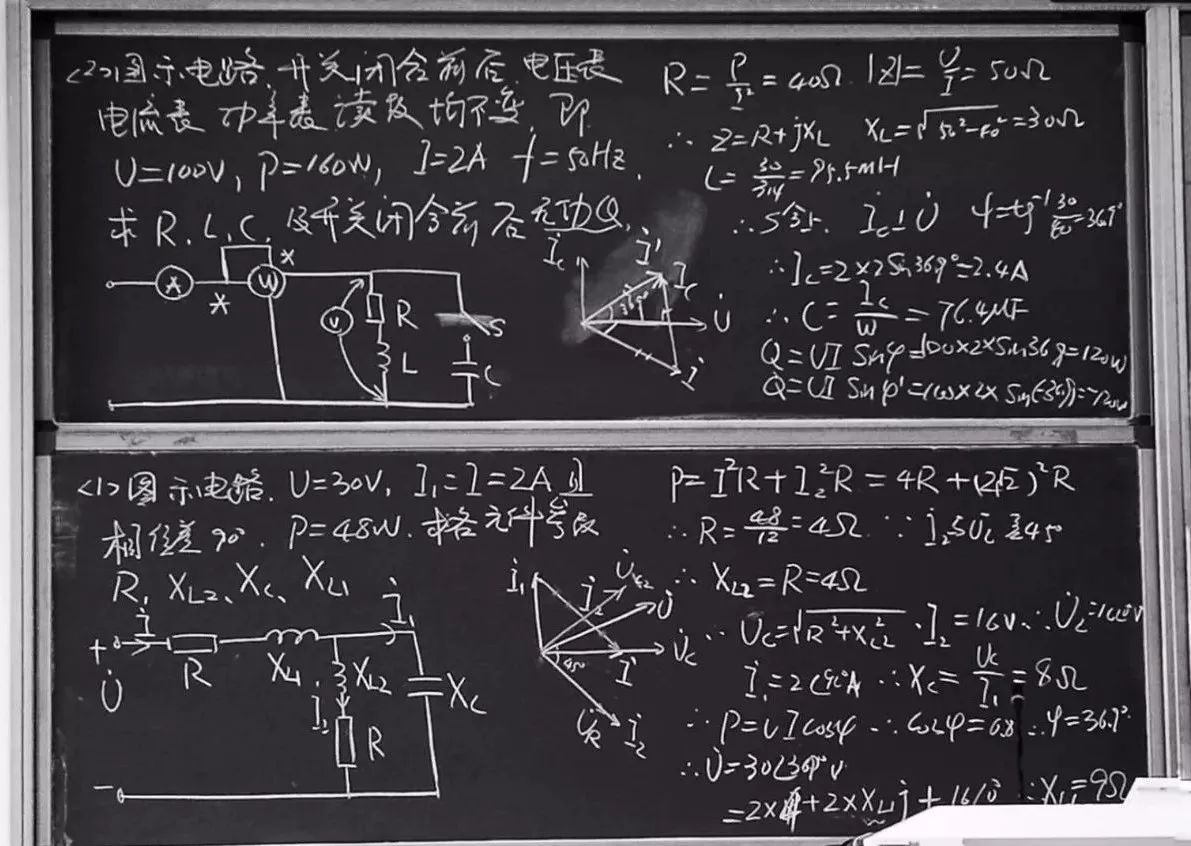 (2)图示电路.开关闭合前后.电压表
电流表 功率表 读数 均不变,即
U=100V, P=160W, I=2A f=50Hz.
求 R.L.C. 及开关闭合前后无功Q.
A
*
W
*
V
R
L
S
C
İc
İ'
Ic
36.9°
U̇
İ
R = P/I² = 40Ω. |Z| = U/I = 50Ω
∴ Z=R+jXL XL=√(50²-40²)=30Ω
L= 30/314 = 95.5mH
∴S合上. İc⊥U̇ φ=tg⁻¹ 30/40=36.9°
∴Ic=2×2Sin36.9°=2.4A
∴ C= Ic/W = 76.4μF
Q=UI Sinφ=100×2×Sin36.9=120W
Q=UI Sinφ'=100×2×Sin(-36.9)=-120W
(1)图示电路. U=30V, I₁=I=2A 且
相位差90°. P=48W.求各元件参数
R, XL2、Xc、XL1
+
İ
İ₁
U̇
R
XL1
XL2
İ₂
R
Xc
-
İ₁
İ
U̇
U̇c
45°
İ
U̇R
İ₂
P=I²R+I₂²R=4R+(2√2)²R
∴R= 48/12 =4Ω ∵ İ₂与U̇c差45°
∴ XL2=R=4Ω
∵ Uc=√(R²+XL2²)·I₂=16V ∴U̇c=16∠0°V
İ₁=2∠90°A ∴Xc= Uc/I₁ =8Ω
∴ P=UIcosφ ∴cosφ=0.8 ∴φ=36.9°
∴U̇=30∠36.9°V
=2×4+2×XL1j+16∠0° ∴XL1=9Ω